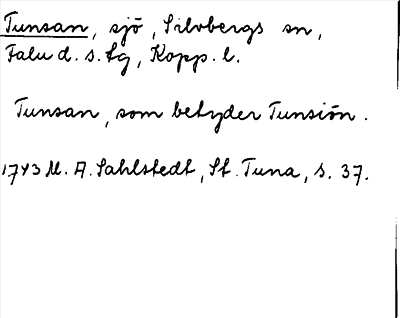 Tunsan, sjö, Silvbergs sn,
Falu d. s. tg, Kopp. l.
Tunsan, som betyder Tunsiön.
1743 M. A. Sahlstedt, St. Tuna, s. 37.